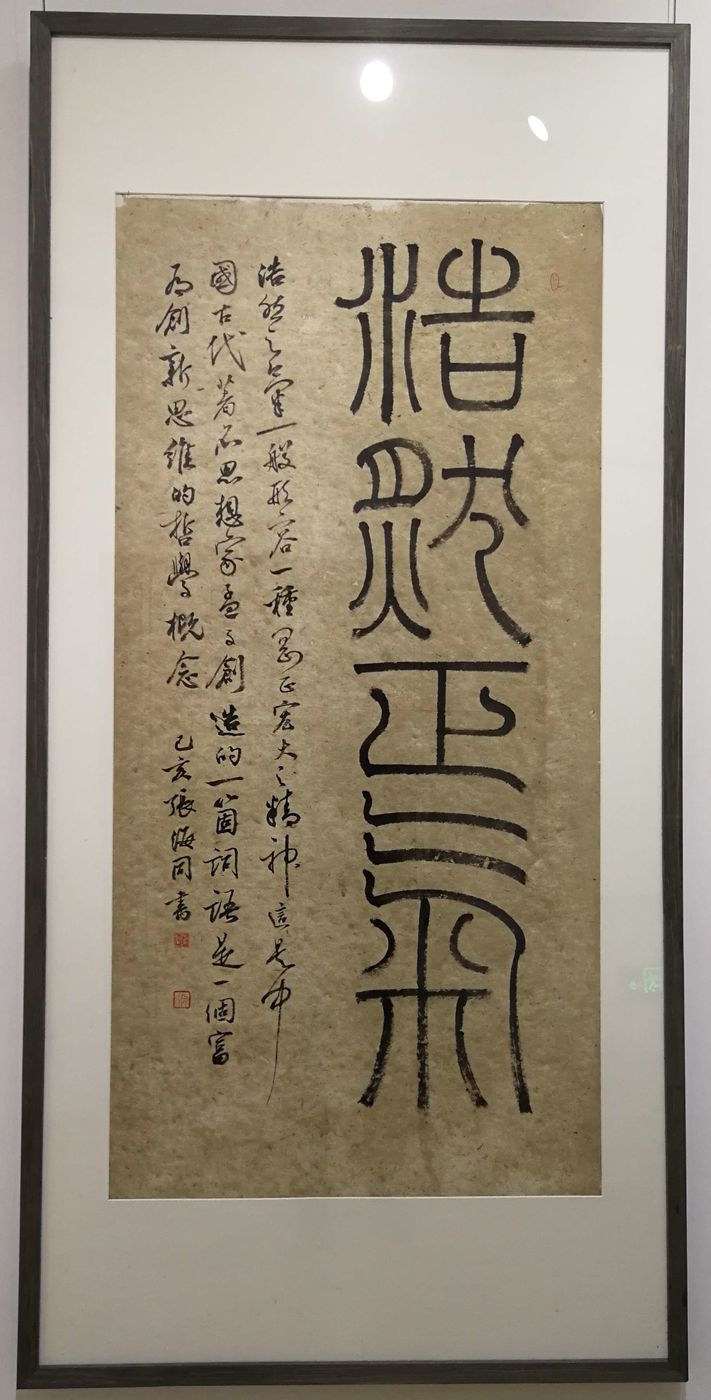 浩然正氣
浩然之氣一般形容一種剛正宏大之精神這是中
國古代著名思想家孟子創造的一箇詞語是一個富
有創新思維的哲學概念 己亥張海同書